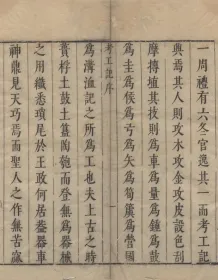 一周禮有六冬官逸其一而考工記
興焉其人則攻木攻金攻皮設色刮
摩摶埴其技則爲車爲量爲鍾爲鼓
爲圭爲侯爲弓爲矢爲筍虡爲營國
考工記序
爲溝洫記之所爲工也夫上古之時
蕢桴土鼓土簋陶匏而登無爲器械
之用纖悉瑣尾於王政何居葢器車
神鼎見天巧焉而聖人之作無苦窳